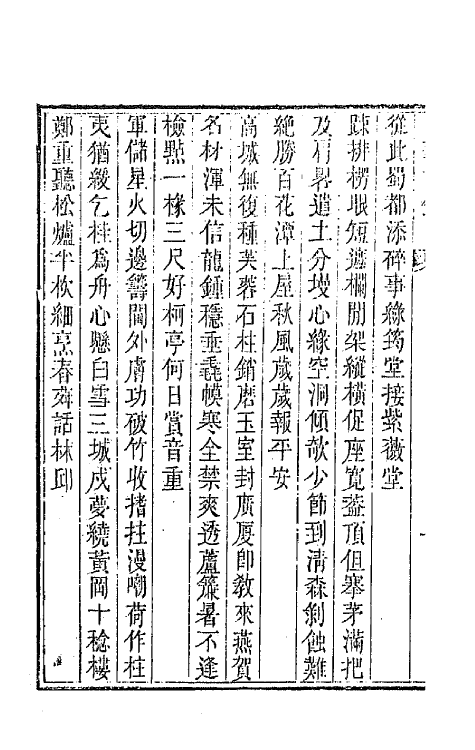 從此蜀都添碎事綠筠堂接紫薇堂
疎排楞眼短遮欄閒架縱橫促座寬葢頂但搴茅滿把
及肩畧遣土分墁心緣空洞傾欹少節到淸森剝蝕難
絶勝百花潭上屋秋風歲歲報平安
高城無復種芙蓉石柱銷磨玉室封廣厦卽敎來燕賀
名材渾未信龍鍾穩垂毳幙寒全禁爽透蘆簾暑不逢
檢㸃一椽三尺好柯亭何日賞音重
軍儲星火切邊籌閫外膚功破竹收搘拄漫嘲荷作柱
夷猶緩乞桂爲舟心懸白雪三城戍夢繞黃岡十稔樓
鄭重聽松爐半杴細烹春莽話林邱